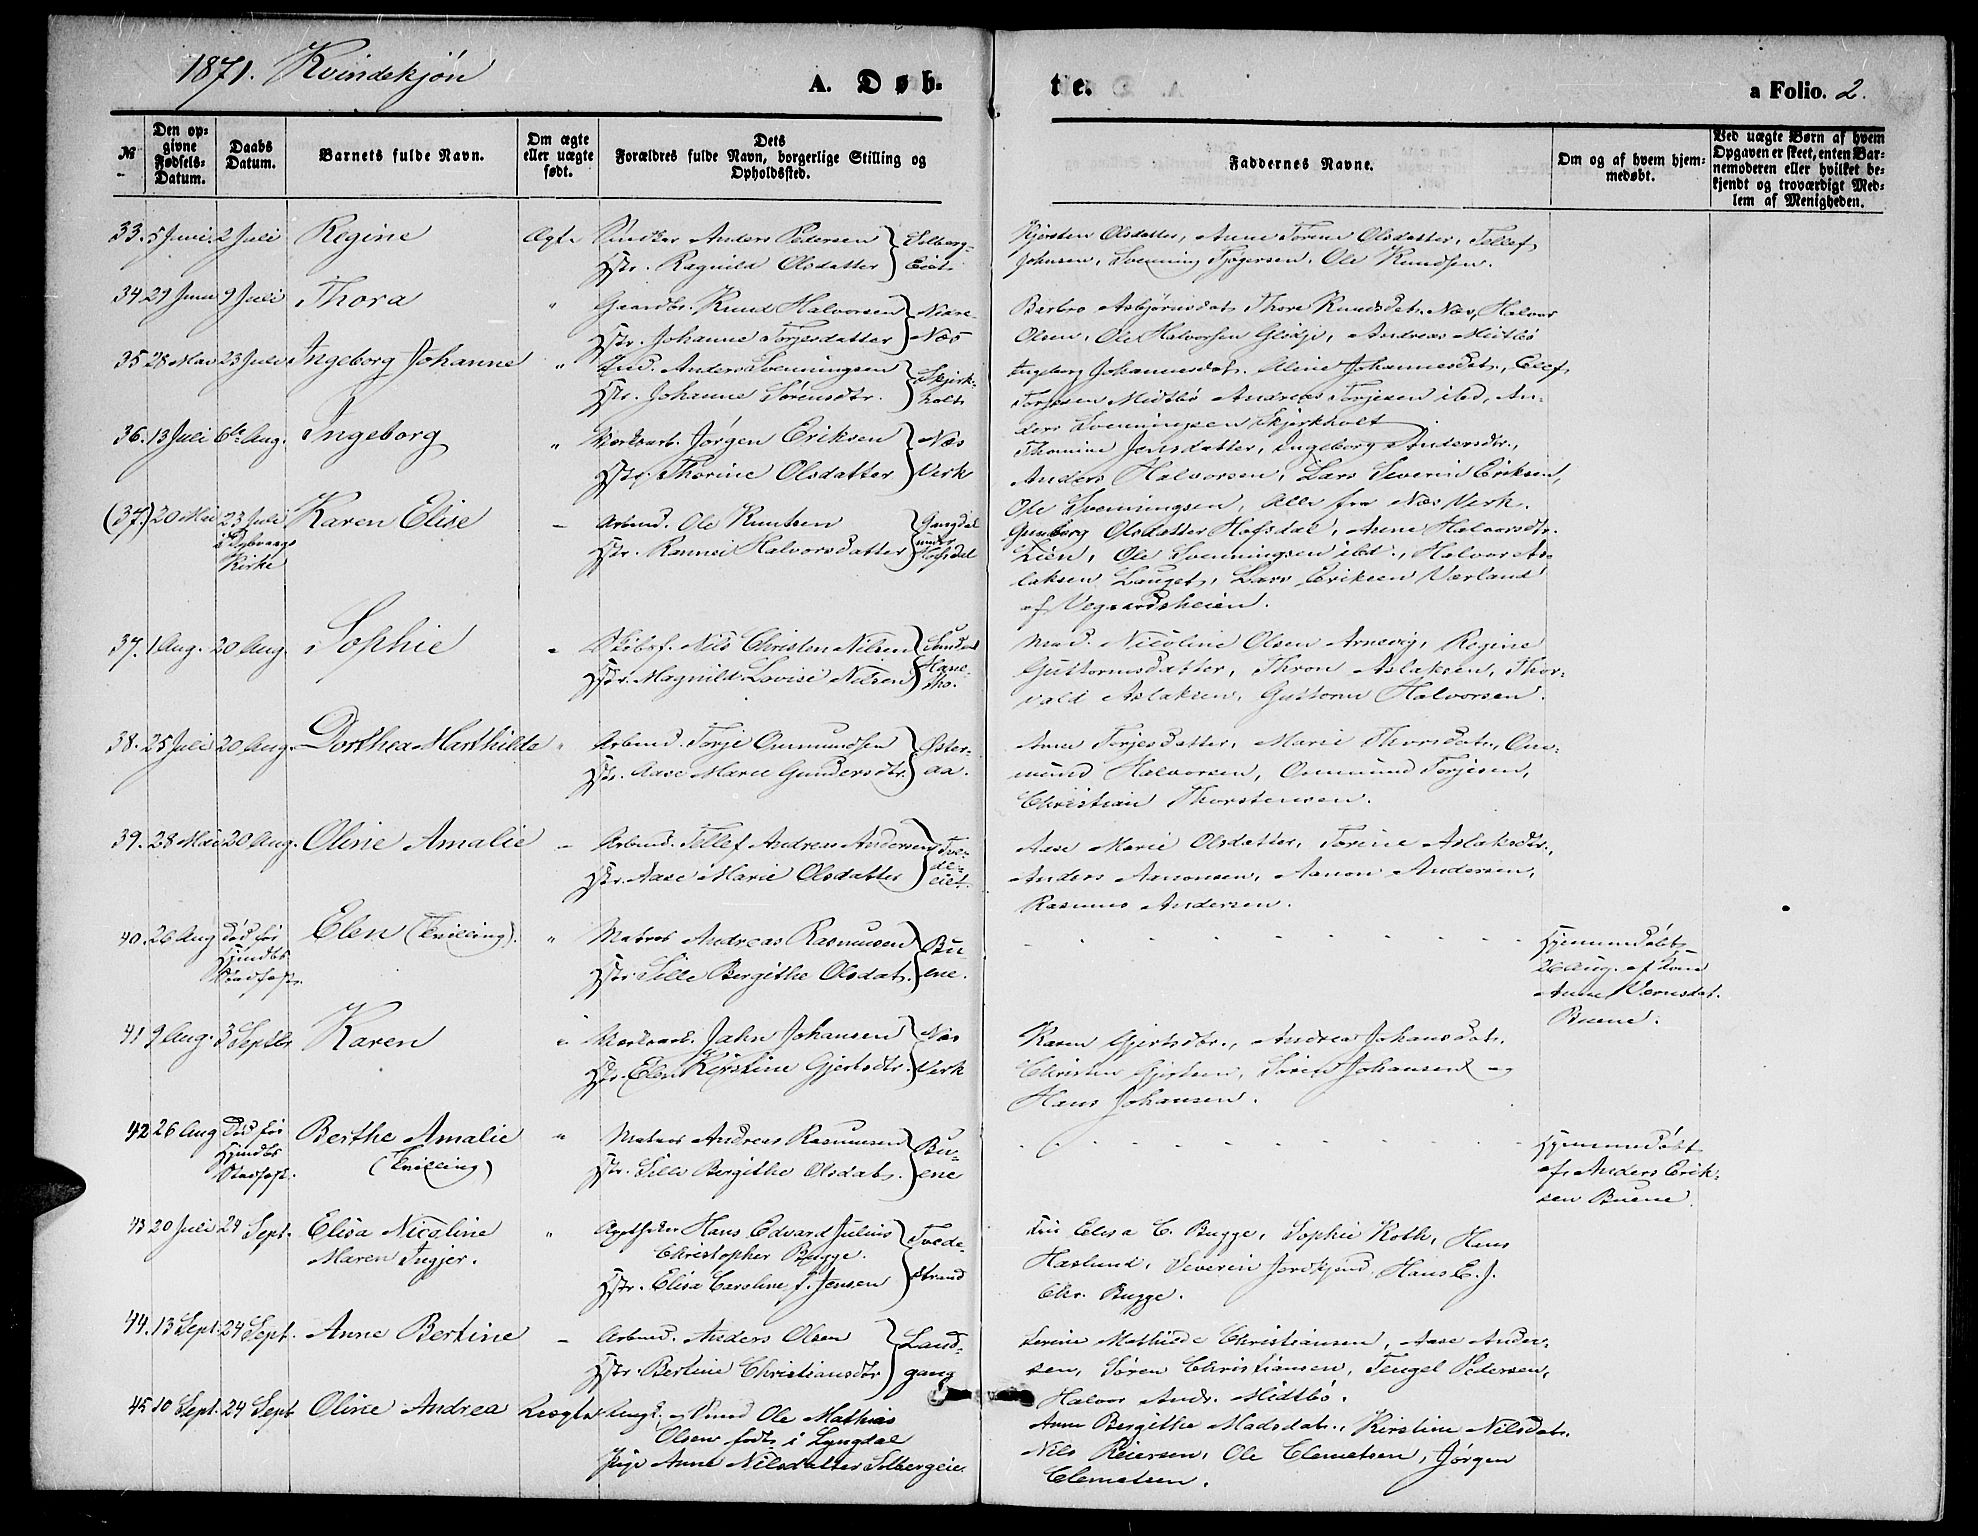 1871. Kvindekjön
A. Døb-
te.
a Folio. 2.
№
Den op-
givne
Fødsels-
Datum.
Daabs
Datum.
Barnets fulde Navn.
Om ægte
eller uægte
født.
Dets
Forældres fulde Navn, borgerlige Stilling og
Opholdssted.
Faddernes Navne.
Om og af hvem hjem-
medøbt.
Ved uægte Børn af hvem
Opgaven er skeet, enten Bar-
nemoderen eller hvilket be-
kjendt og troværdigt Med-
lem af Menigheden.
33. 5 Juni. 2 Juli Regine Ægte Anders Pedersen Solberg-
Hstr. Ragnild Olsdatter Eiet.
Kjersten Olsdatter, Anne Torine Olsdatter, Tellef
Johnsen, Svenning Tjøgersen, Ole Knudsen.
34 29 Juni 9 Juli Thora " Gaardbr. Knud Halvorsen Nedre
Hstr. Johanne Torjesdatter Næs
Barbro Asbjørnsdat. Thore Knudsdat. Næs, Halvor
Olsen, Ole Halvorsen Andreas Midtbö
35 28 Mai 23 Juli Ingeborg Johanne " Ind. Anders Svenningsen Skjerk-
Hstr. Johanne Sörensdtr. holt
Ingeborg Johannesdat. Aline Johannesdat., Olef
Torjesen Midtbö Andreas Torjesen ibd, An-
ders Svenningsen Skjerkholt
36. 13 Juli 6te Aug. Ingeborg " Værksarb. Jørgen Eriksen Næs
Hstr. Thorine Olsdatter Verk
Thomine Jensdatter, Ingeborg Andersdtr.,
Anders Halvorsen, Lars Severin Eriksen,
Ole Svenningsen, alle fra Næs Verk.
(37.) 20 Mai 23 Juli Karen Elise - Arbmd. Ole Knutsen Gangdal
i Dybvaags Hstr. Rannei Halvorsdatter under
Kirke Hofsdal
Gunborg Olsdatter Hofsdal, Anne Halvorsdtr.
Lien, Ole Svenningsen ibd., Halvor As-
laksen Lauget, Lars Eriksen Værland
af Vegaardsheien.
37. 1 Aug. 20 Aug. Sophie " Skibsf. Nils Christen Nilsen Sundet
Hstr. Magnild Lovise Nilsen
Mad. Nicoline Olsen Arnevig, Regine
Guttormsdatter, Thron Aslaksen, Thor-
vald Aslaksen, Guttorm Halvorsen.
38. 25 Juli 20 Aug. Dorthea Marthilde " Arbmd. Torje Ommundsen Öster-
Hstr. Aase Marie Gundersdtr. aa.
Anne Torjesdatter, Marie Thorsdat., Om-
mund Halvorsen, Ommund Torjesen,
Christian Thorstensen.
39. 28 Mai 20 Aug. Oline Amalie - Arbmd. Tellef Andreas Andersen Tve-
Hstr. Aase Marie Olsdatter de-
eiet.
Aase Marie Olsdatter, Torine Aslaksdtr.,
Anders Aanonsen, Aanon Andersen,
Rasmus Andersen.
40. 26 Aug Död för Elen (Tvilling). " Matros Andreas Rasmusen Bu-
Hjemdbs Hstr. Sille Bergithe Olsdat. ene.
Stadfæst.
Hjemmedöbt
26 Aug. af Kone
Anne
Buene.
41 9 Aug. 3 Septbr Karen " Værksarb. Jahn Johansen Næs
Hstr. Elen Kirstine Gjertsdtr. Verk
Karen Gjertsdtr., Andrea Johansdat.
Christen Gjertsen, Sören Johansen og
Hans Johansen.
42 26 Aug Död för Berthe Amalie " Matros Andreas Rasmusen Bu-
Hjemdbs (Tvilling) Hstr. Sille Bergithe Olsdat. ene
Stadfæst.
Hjemmedöbt
af Anders Erik-
sen Buene
43 20 Juli 24 Sept. Elisa Nicoline " Apotheker Hans Edvard Julius Tvede-
Maren Ingjer. Christopher Bugge. strand
Hstr. Elisa Caroline f. Jensen
Fru Elisa C. Bugge, Sophie Roth, Hans
Haslund, Severin Jordkjend, Hans E. J.
Chr. Bugge.
44. 13 Sept. 24 Sept. Anne Bertine - Arbmd. Anders Olsen Land-
Hstr. Bertine Christiansdtr gang
Serine Mathilde Christiansen, Aase Ander-
sen, Sören Christiansen, Tengel Pedersen,
Halvor Andr. Midtbö.
45 10 Sept. 24 Sept Oline Andrea Uægte Ungk. og Smed Ole Mathias
Olsen födt i Lyngdal
Pige Anne Nilsdatter Solbergeie
Anne Bergithe Madsdat., Kirstine Nilsdat.
Nils Reiersen, Ole Clemetsen, Jørgen
Clemetsen.